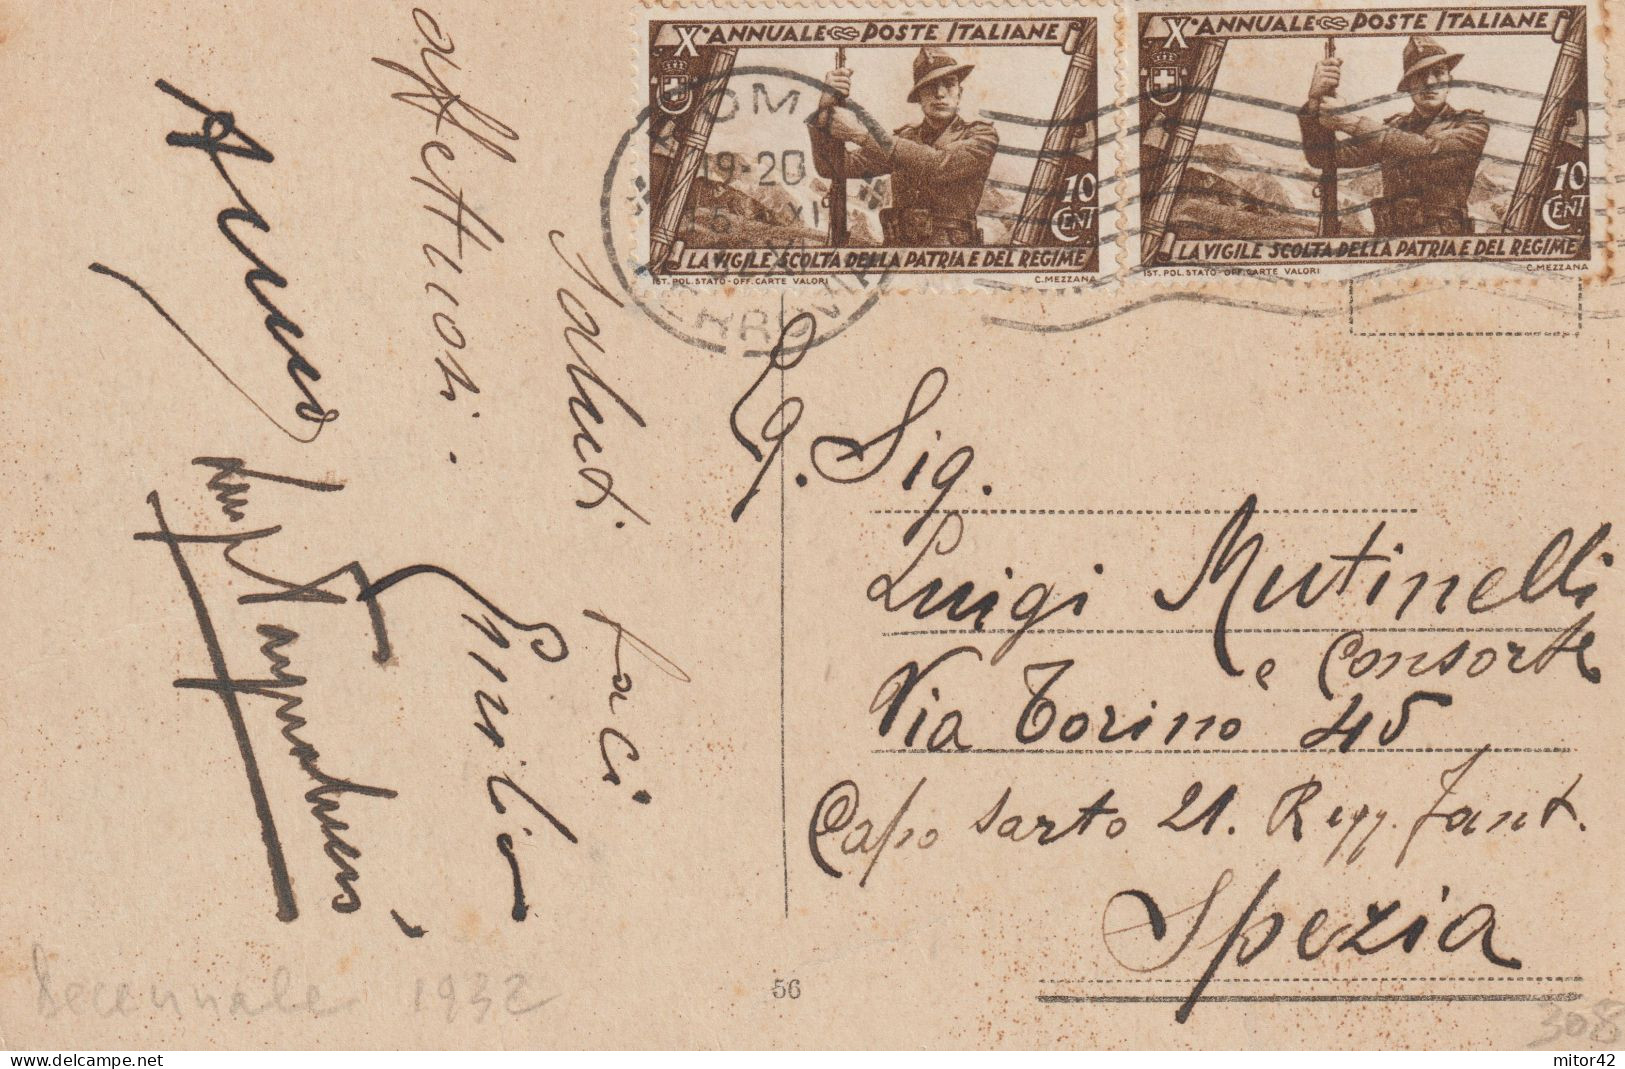 X° ANNUALE POSTE ITALIANE
10 CENT
LA VIGILE SCOLTA DELLA PATRIA E DEL REGIME
IST. POL. STATO - OFF. CARTE VALORI C. MEZZANA
X° ANNUALE POSTE ITALIANE
10 CENT
LA VIGILE SCOLTA DELLA PATRIA E DEL REGIME
IST. POL. STATO - OFF. CARTE VALORI C. MEZZANA
ROMA
19-20
FERROVIA
affettuosi
Saluti
baci
Emilio
Eg. Sig.
Luigi Mutinelli
e Consorte
Via Torino 45
Capo sarto 21. Regg. Fant.
Spezia
Decennale 1932
56
308
mitor42